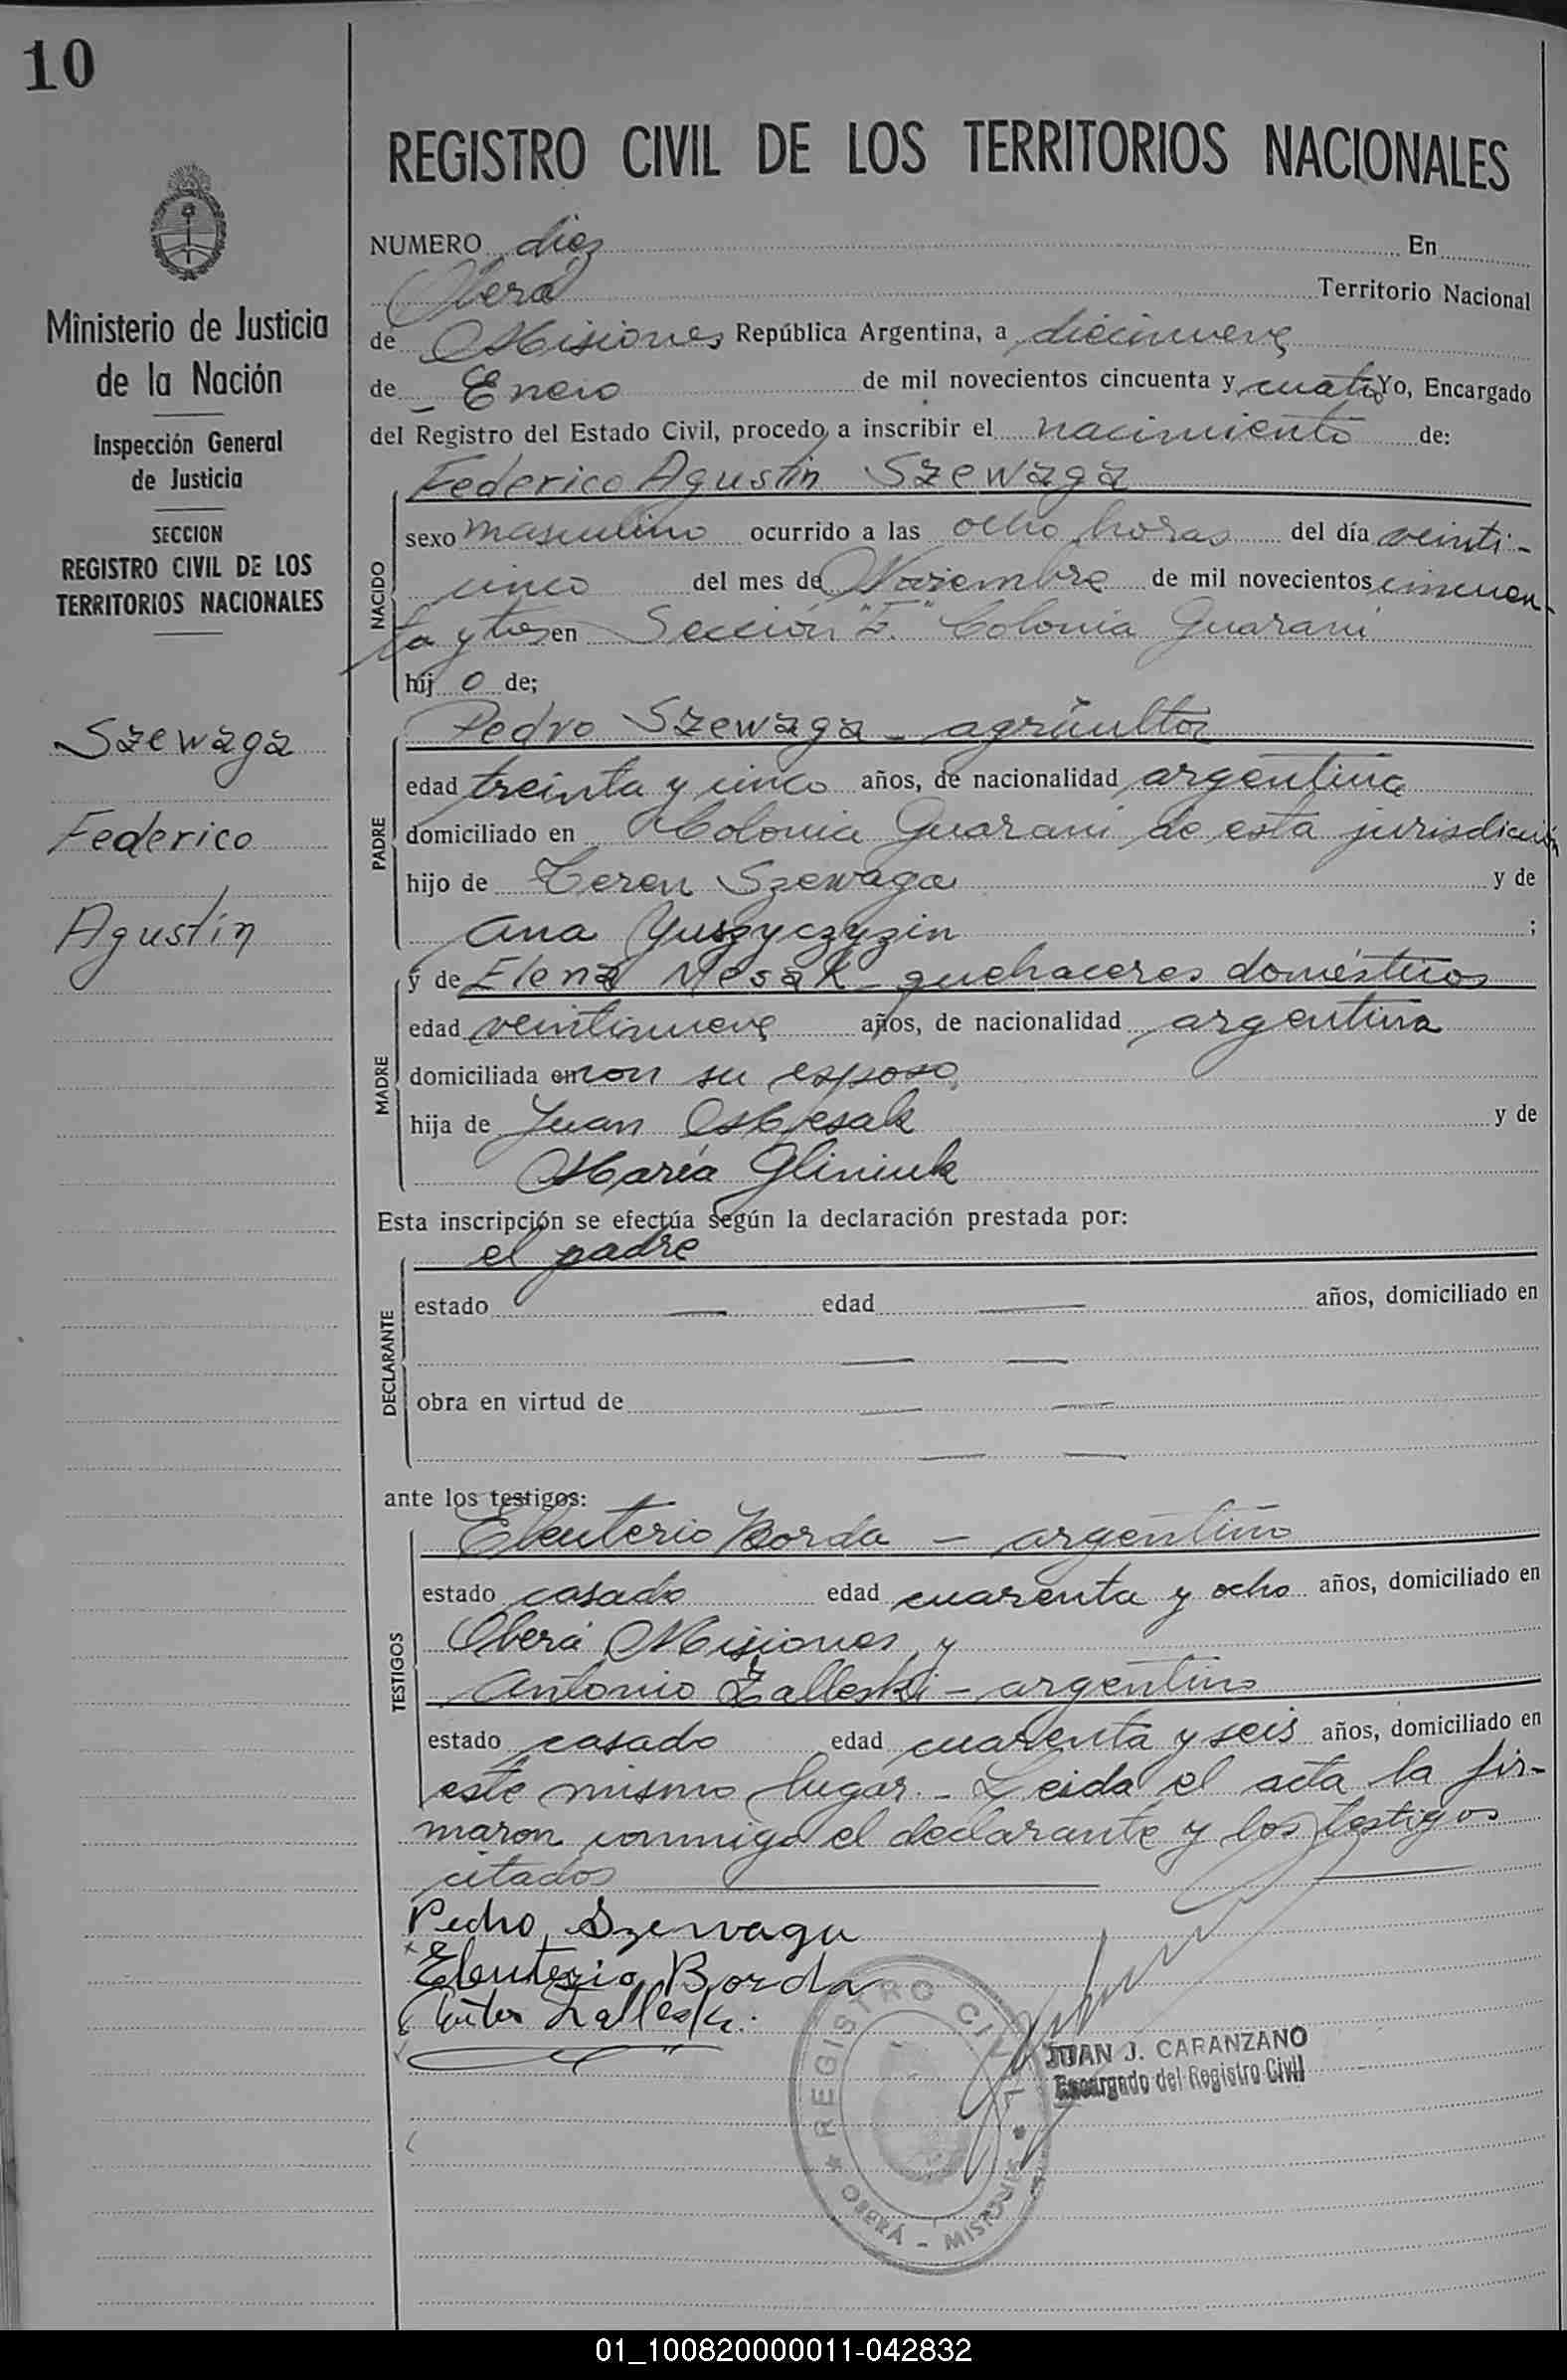 10
REGISTRO CIVIL DE LOS TERRITORIOS NACIONALES
NUMERO diez En
Oberá Territorio Nacional
de Misiones República Argentina, a diecinueve
de Enero de mil novecientos cincuenta y cuatro Yo, Encargado
del Registro del Estado Civil, procedo a inscribir el nacimiento de:
Federico Agustín Szewaga
NACIDO
sexo masculino ocurrido a las ocho horas del día veinti-
cinco del mes de Noviembre de mil novecientos cincuen-
ta y tres en Sección "F." Colonia Guaraní
hij o de;
Pedro Szewaga - agricultor
PADRE
edad treinta y cinco años, de nacionalidad argentina
domiciliado en Colonia Guaraní de esta jurisdicción
hijo de Teren Szewaga y de
Ana Yuszyczyzin ;
y de Elena Mesak - quehaceres domésticos
MADRE
edad veintinueve años, de nacionalidad argentina
domiciliada en con su esposo
hija de Juan Mesak y de
María Gliniuk
Esta inscripción se efectúa según la declaración prestada por:
el padre
DECLARANTE
estado — edad — años, domiciliado en
— —
obra en virtud de — —
— —
ante los testigos:
Eleuterio Borda - argentino
TESTIGOS
estado casado edad cuarenta y ocho años, domiciliado en
Oberá Misiones y
Antonio Zalleski - argentino
estado casado edad cuarenta y seis años, domiciliado en
este mismo lugar. - Leida el acta la fir-
maron conmigo el declarante y los testigos
citados
Pedro Szewaga
Eleuterio Borda
Zalleski
REGISTRO CIVIL
OBERÁ - MISIONES
JUAN J. CARANZANO
Encargado del Registro Civil
Ministerio de Justicia
de la Nación
Inspección General
de Justicia
SECCION
REGISTRO CIVIL DE LOS
TERRITORIOS NACIONALES
Szewaga
Federico
Agustín
01_100820000011-042832